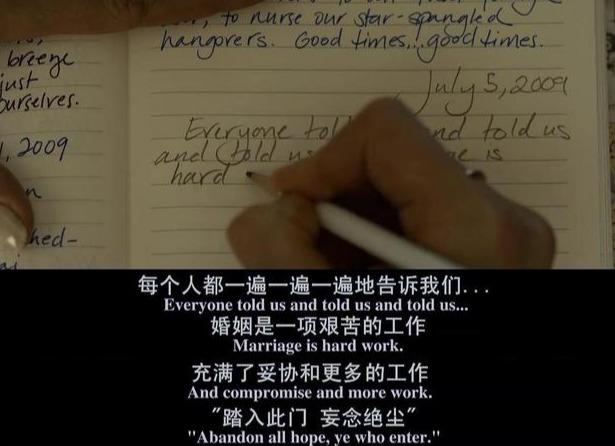 to nurse our star-spangled
hangovers. Good times...good times.
breeze
just
ourselves.
2009
July 5, 2009
Everyone told us
and told us
hard
每个人都一遍一遍一遍地告诉我们...
Everyone told us and told us and told us...
婚姻是一项艰苦的工作
Marriage is hard work.
充满了妥协和更多的工作
And compromise and more work.
"踏入此门 妄念绝尘"
"Abandon all hope, ye who enter."